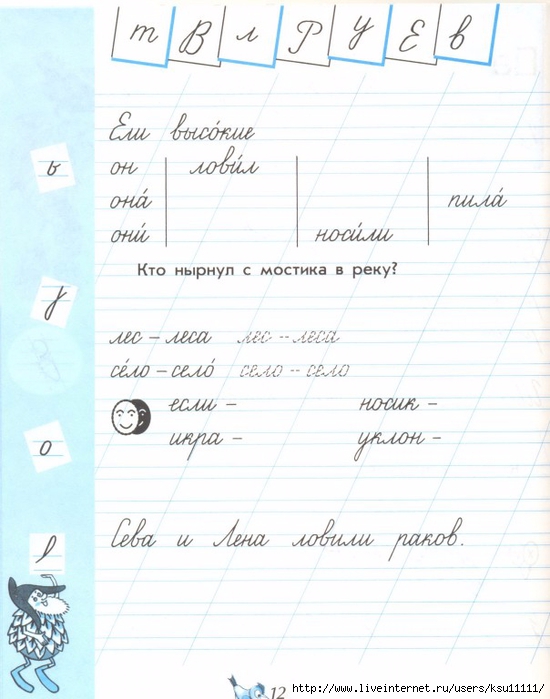 т В л Р У Е в
Ели высо́кие
он лови́л
она́ пила́
они́ носи́ли
Кто нырнул с мостика в реку?
лес – леса лес -- леса
се́ло – село́ село -- село
если – носик –
икра – уклон –
о
Сева и Лена ловили раков.
12
http://www.liveinternet.ru/users/ksu11111/